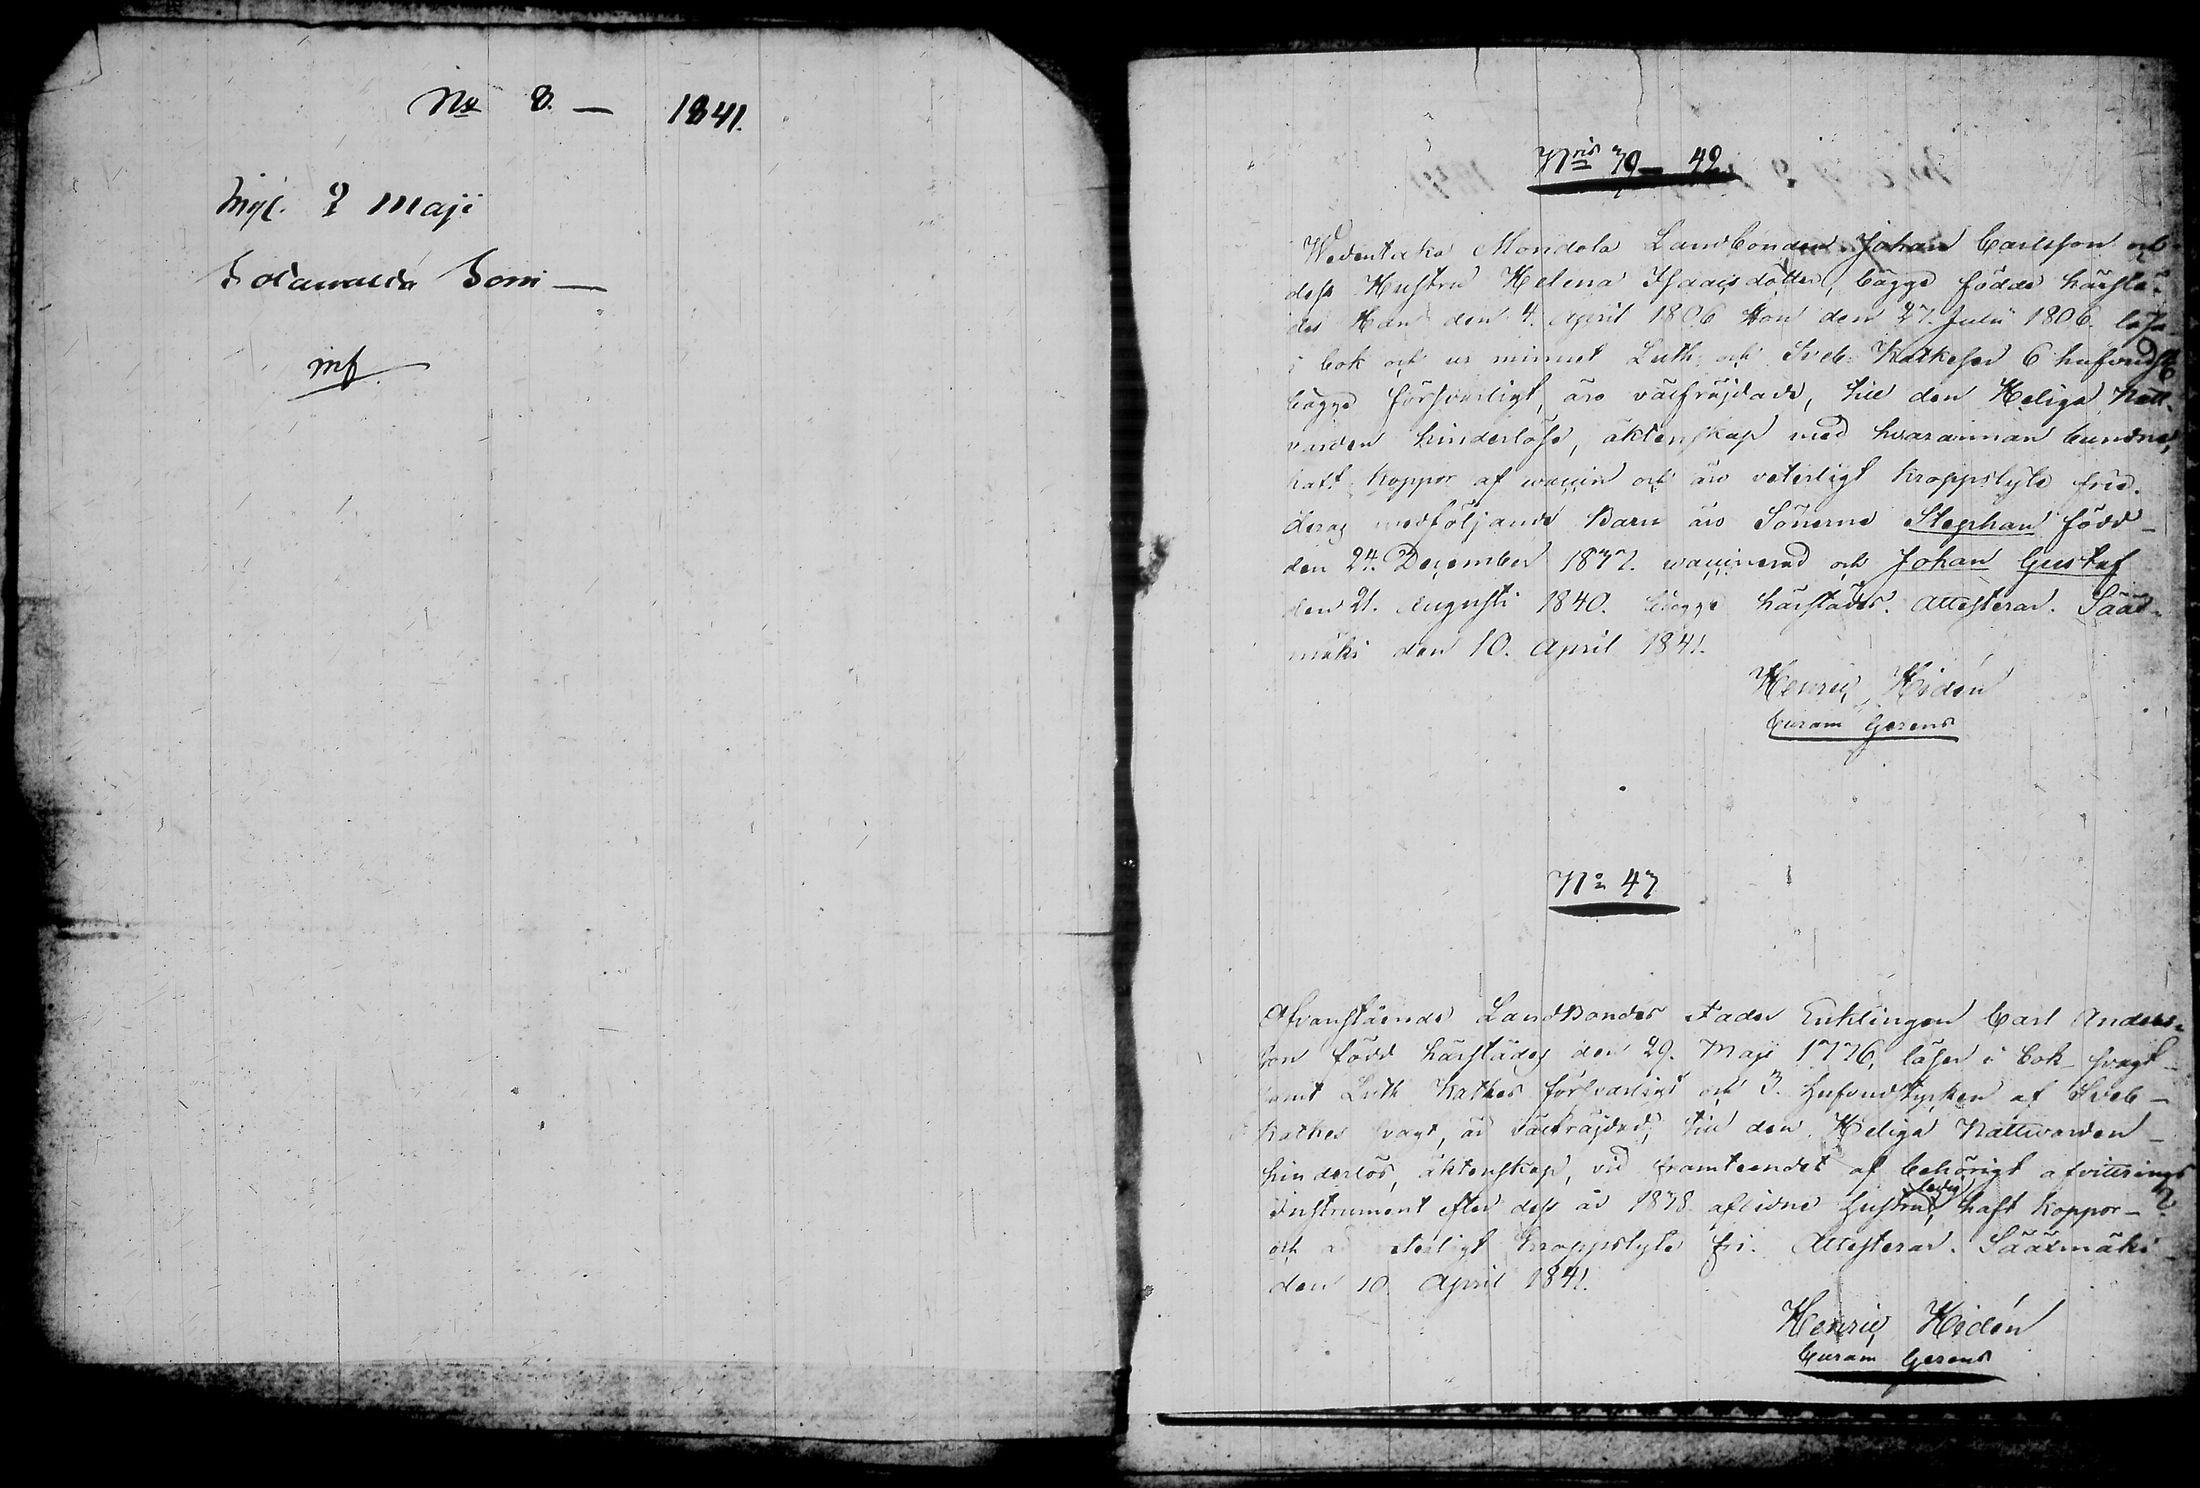 No 8. — 1841.
Ink. 9 Maji
Soni —
inf
Nris 39 — 42.
Wedentaka Mondola Landbonden Johan Carlsson och
dess Hustru Helena Isaacsdotter, bägge födde härstä-
des Han den 4. April 1806 Hon den 27. Julii 1806. läsa
i bok och ur minnet Luth. och Sveb. Katkeser 6 hufvudst
bägge försvarligt, äro välfräjdade, till den Heliga Natt-
varden hinderlöse, äktenskap med hvarannan bundne,
haft koppor af waccin och äro veterligt kroppslyte frie.
Deras medföljande Barn äro Sönerne Stephan född
den 24. December 1837. waccinerad och Johan Gustaf
den 21. Augusti 1840. bägge härstädes. Attesterar. Sääx-
mäki den 10. April 1841.
Henric Hidén
Curam Gerens
No 43
Ofvanstående Landbondes Fader Enklingen Carl Anders-
son född härstädes den 29. Maji 1776, läser i bok svagt
samt Luth Katkes försvarligt och 3. Hufvudstycken af Sveb
Katkes svagt, är välfräjdad, till den Heliga Nattvarden
hinderlös, äktenskap, vid framteendet af behörigt afvittrings
Instrument efter dess år 1838 aflidne Hustru, ledig haft koppor
och ä veterligt kroppslyte fri. Attesterar. Sääxmäki
den 10 April 1841.
Henric Hidén
Curam Gerens